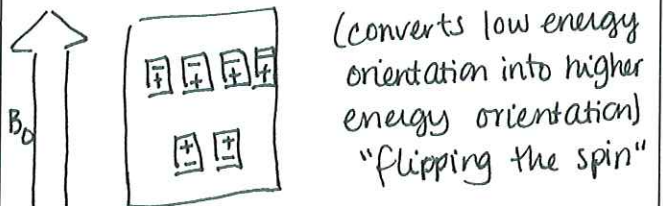 (converts low energy
orientation into higher
energy orientation)
"flipping the spin"
B₀
- - - -
+ + + +
+ +
- -